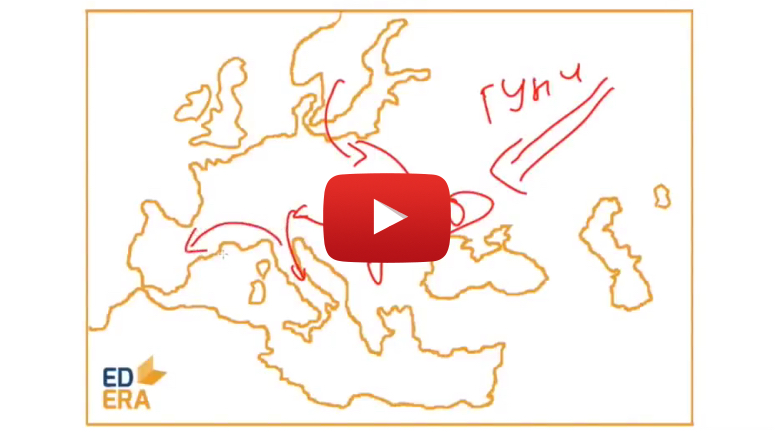 гуни
ED
ERA